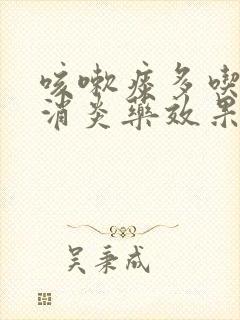 咳嗽痰多喫
消炎藥效果
吴秉成